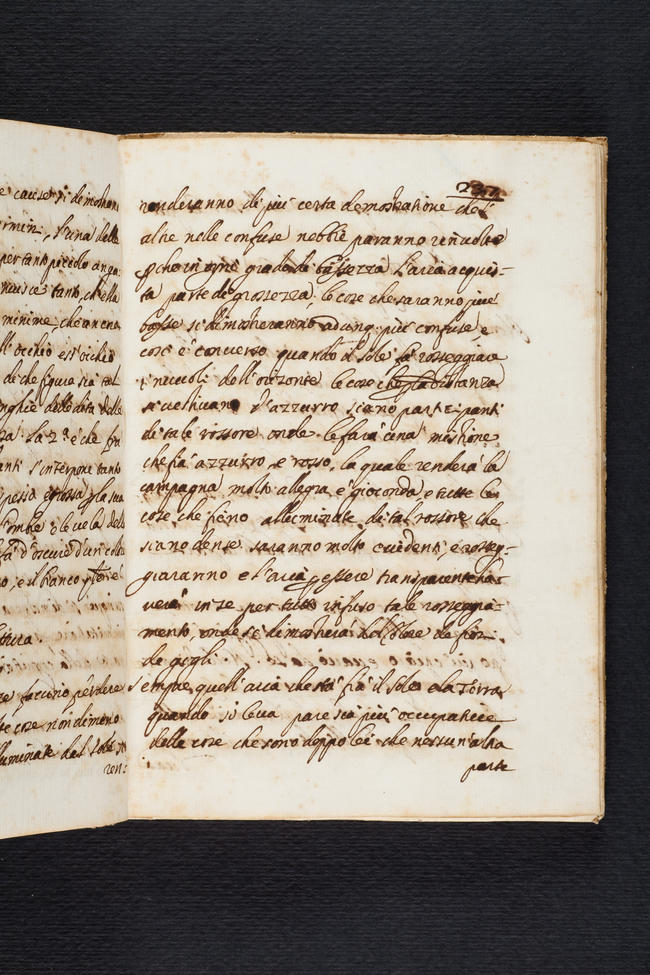 e cause si dimostrano
rimin, l'una delle
per tanto piccolo anga
nuisce tanto, ch'ella
minime, che ancora
ll'occhio e ss'ochio
di che figura sia tal
nghie delle dita delle
La 2ª è che fra
anti s'interpone tanto
spessa e grossa
e le vela della
d'un colore
e il bianco
ttura
faccino perdere
le cose nondimeno
luminate dal sole
ren:
237
renderanno di più certa demostratione che l'
altre nelle confuse nebbie paranno rinvolte
che in ogni grado di bassezza l'aria acquis-
ta parte di grossezza. le cose che saranno più
basse si dimosterannò adunq. più confuse, e
così è converso quando il sole fa rosseggiare
i nuvoli dell'orizonte le cose che la distanza
si vestivano d'azzurro siano partecipanti
di tale rossore onde le farà una mistione
che fia azzurro, e rosso, la quale renderà la
campagna molto allegra, e gioconda, e tutte le
cose che fieno alluminate di tal rossore che
siano dense saranno molto evidenti, e rosseg-
giaranno e l'aria p essere transparente ha-
verà in se per tutto infuso tale rosseggia-
mento, onde si dimosterrà del colore de fior
de gigli
Sempre quell'aria che sta fra il sole e la Terra
quando si leva pare sia più occupatrice
delle cose che sono doppo lei che nessun'altra
parte